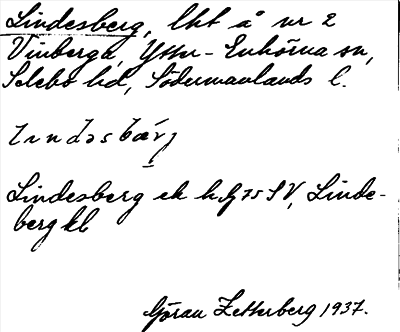 Lindesberg, lht å nr 2
Vinberga, Ytter-Enhörna sn,
Selebo hd, Södermanlands l.
Lindesberg ek h.bl 75 SV, Linde-
berg kl
Göran Zetterberg 1937.